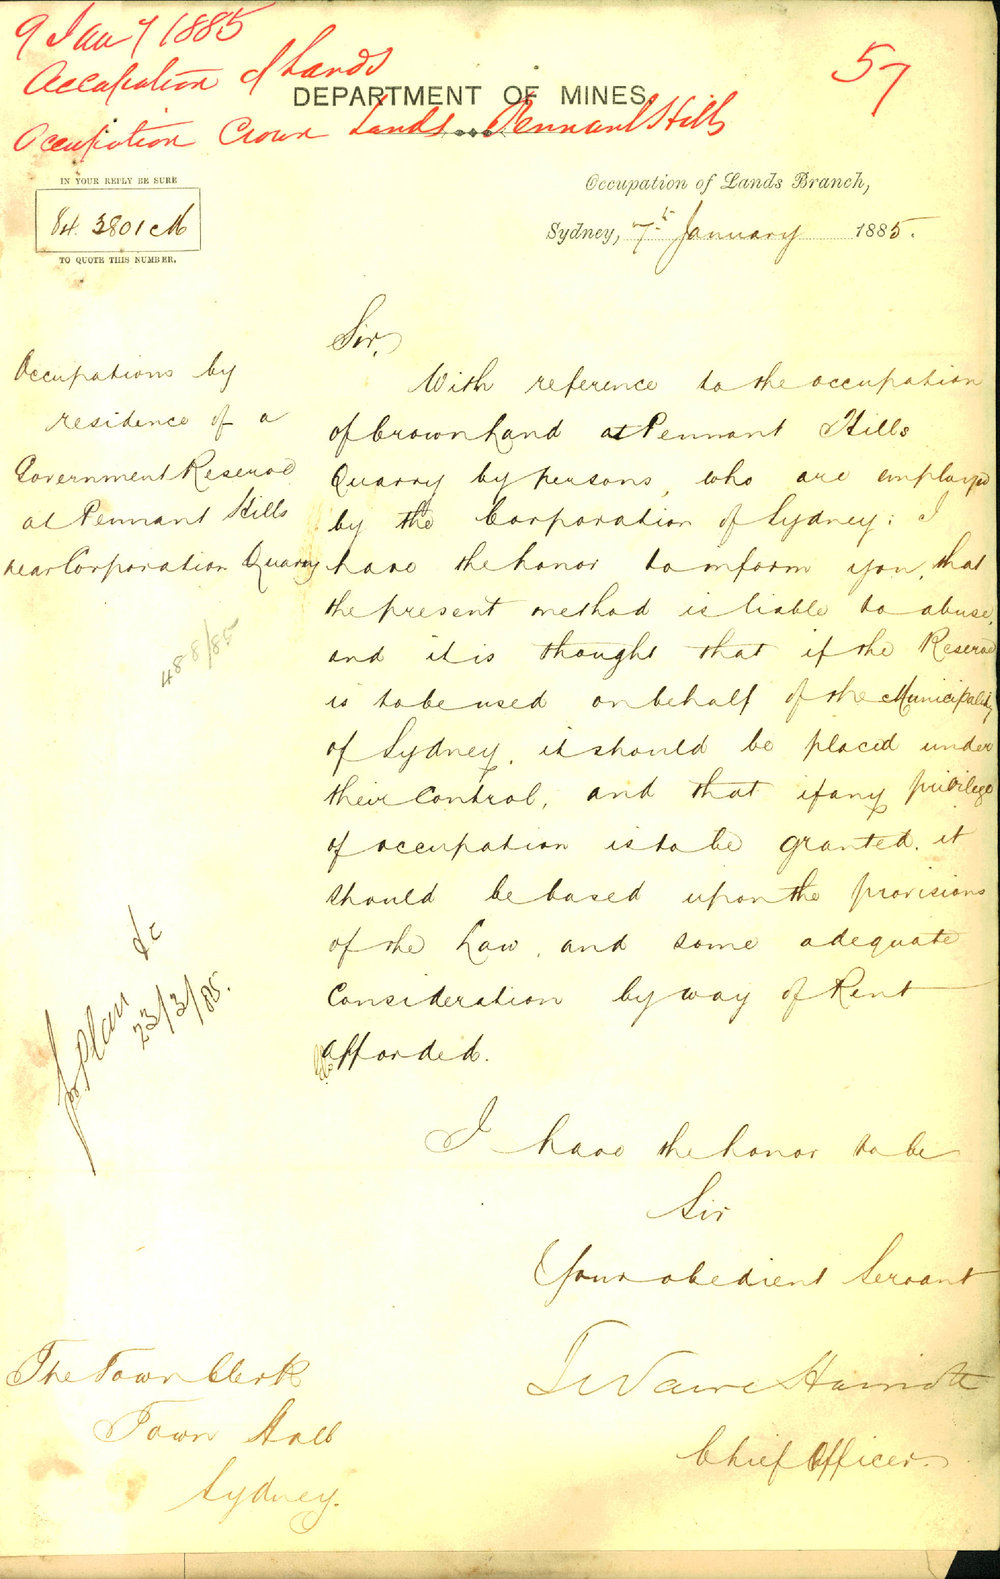 9 Jany 1885
57
Occupation of Lands
DEPARTMENT OF MINES,
Occupation Crown Lands Pennant Hills
IN YOUR REPLY BE SURE
84. 3801 M
TO QUOTE THIS NUMBER.
Occupation of Lands Branch,
Sydney, 7th January 1885.
Occupations by
residence of a
Government Reserve
at Pennant Hills
near Corporation Quarry
488/85
for plan &c
23/3/85.
Sir,
With reference to the occupation
of Crown Land at Pennant Hills
Quarry by persons, who are employed
by the Corporation of Sydney; I
have the honor to inform you, that
the present method is liable to abuse,
and it is thought that if the Reserve
is to be used on behalf of the Municipality
of Sydney, it should be placed under
their Control, and that if any privilege
of occupation is to be granted, it
should be based upon the provisions
of the Law, and some adequate
Consideration by way of Rent
afforded.
I have the honor to be
Sir
Your obedient Servant
Chief Officer.
The Town Clerk
Town Hall
Sydney.